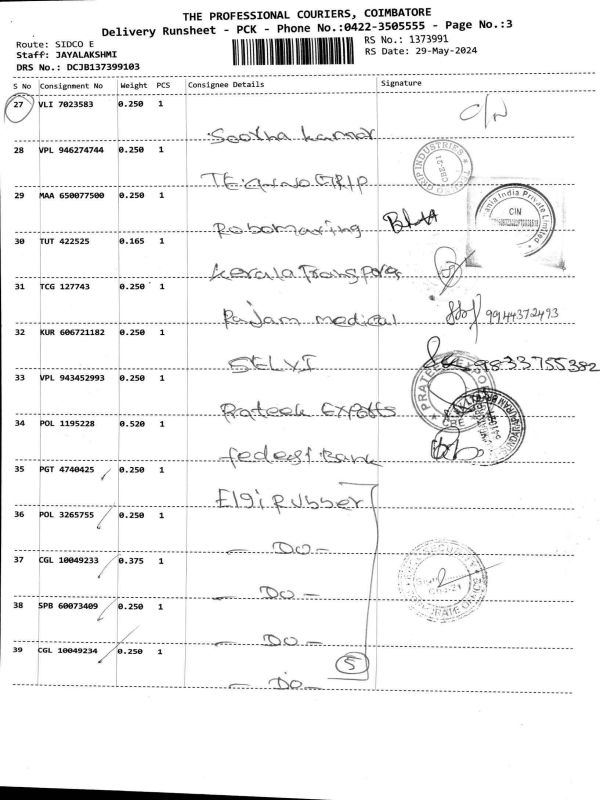 THE PROFESSIONAL COURIERS, COIMBATORE
Delivery Runsheet - PCK - Phone No.:0422-3505555 - Page No.:3
Route: SIDCO E
RS No.: 1373991
Staff: JAYALAKSHMI
RS Date: 29-May-2024
DRS No.: DCJB137399103
S No Consignment No Weight PCS Consignee Details Signature
27 VLI 7023583 0.250 1
C/N
28 VPL 946274744 0.250 1
29 MAA 650077500 0.250 1
CIN
Robomaring
30 TUT 422525 0.165 1
Kerala Transport
31 TCG 127743 0.250 1
Rajam medical 9944372493
32 KUR 606721182 0.250 1
SELVI 9833755382
33 VPL 943452993 0.250 1
Prateek Exports
34 POL 1195228 0.520 1
federal Bank
35 PGT 4740425 0.250 1
Elgi Rubber
36 POL 3265755 0.250 1
- DO -
37 CGL 10049233 0.375 1
- DO -
38 SPB 60073409 0.250 1
- DO -
39 CGL 10049234 0.250 1
5
- DO -